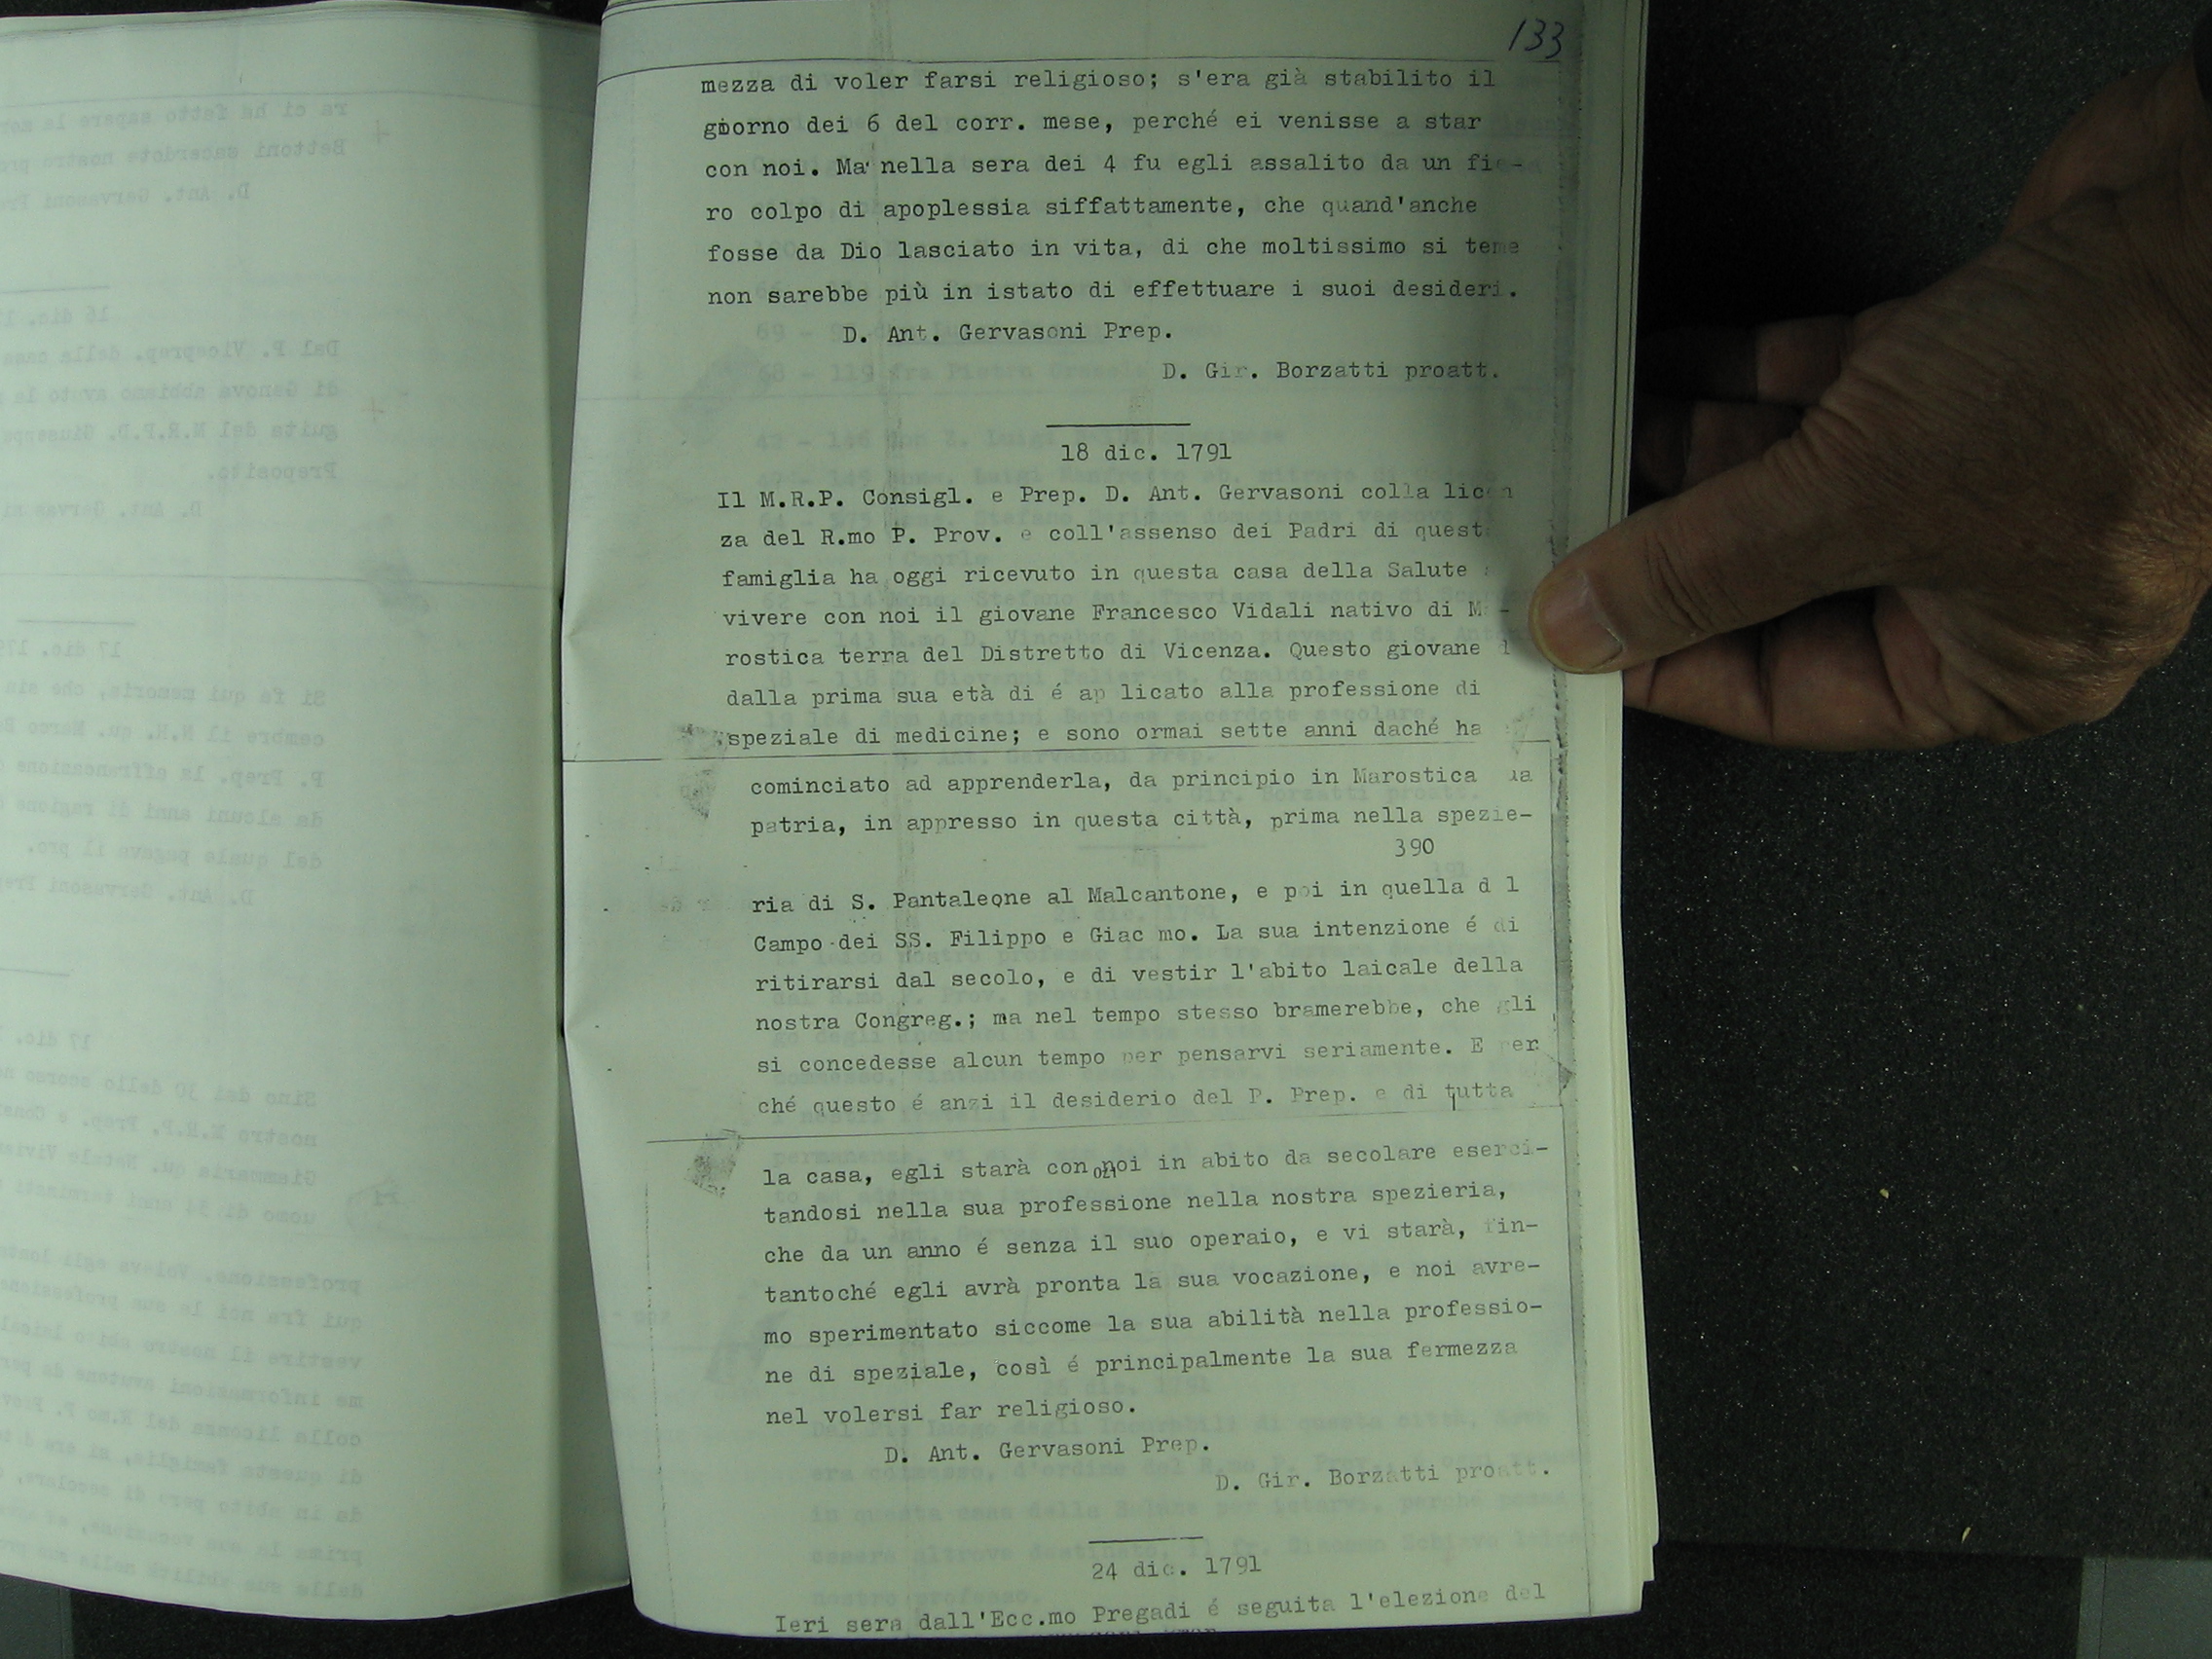 133
mezza di voler farsi religioso; s'era già stabilito il
giorno dei 6 del corr. mese, perché ei venisse a star
con noi. Ma nella sera dei 4 fu egli assalito da un fie-
ro colpo di apoplessia siffattamente, che quand'anche
fosse da Dio lasciato in vita, di che moltissimo si teme
non sarebbe più in istato di effettuare i suoi desideri.
D. Ant. Gervasoni Prep.
D. Gir. Borzatti proatt.
18 dic. 1791
Il M.R.P. Consigl. e Prep. D. Ant. Gervasoni colla licen
za del R.mo P. Prov. e coll'assenso dei Padri di quest
famiglia ha oggi ricevuto in questa casa della Salute
vivere con noi il giovane Francesco Vidali nativo di M -
rostica terra del Distretto di Vicenza. Questo giovane
dalla prima sua età di é ap licato alla professione di
speziale di medicine; e sono ormai sette anni daché ha
cominciato ad apprenderla, da principio in Marostica ua
patria, in appresso in questa città, prima nella spezie-
390
ria di S. Pantaleone al Malcantone, e poi in quella d l
Campo dei SS. Filippo e Giac mo. La sua intenzione é di
ritirarsi dal secolo, e di vestir l'abito laicale della
nostra Congreg.; ma nel tempo stesso bramerebbe, che gli
si concedesse alcun tempo per pensarvi seriamente. E per
ché questo é anzi il desiderio del P. Prep. e di tutta
la casa, egli starà con noi in abito da secolare eserci-
tandosi nella sua professione nella nostra spezieria,
che da un anno é senza il suo operaio, e vi starà, fin-
tantoché egli avrà pronta la sua vocazione, e noi avre-
mo sperimentato siccome la sua abilità nella professio-
ne di speziale, così é principalmente la sua fermezza
nel volersi far religioso.
D. Ant. Gervasoni Prep.
D. Gir. Borzatti proatt.
24 dic. 1791
Ieri sera dall'Ecc.mo Pregadi é seguita l'elezione del